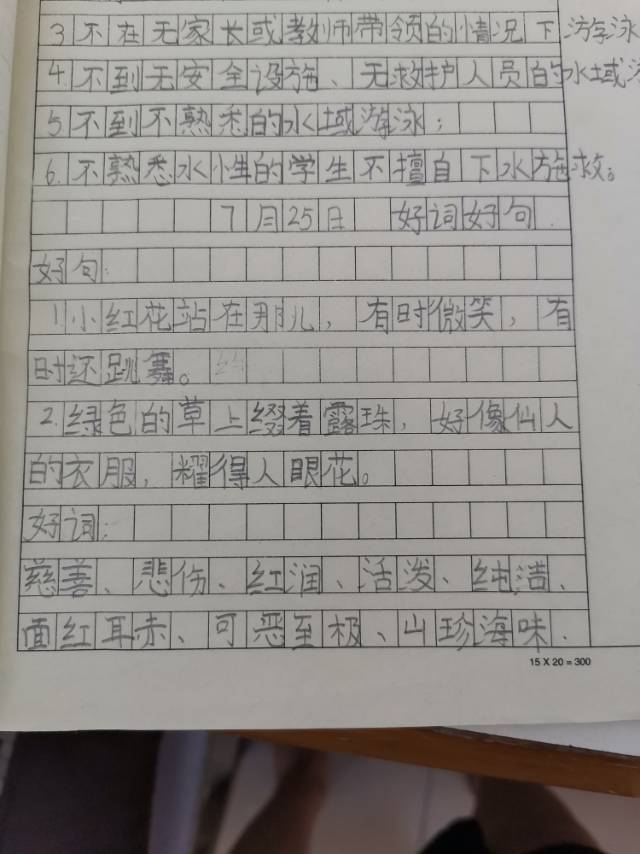 3不在无家长或教师带领的情况下游泳
4.不到无安全设施、无救护人员的水域游
5不到不熟悉的水域游泳；
6.不熟悉水性的学生不擅自下水施救。
7月25日 好词好句
好句：
1小红花站在那儿，有时微笑，有
时还跳舞。
2.绿色的草上缀着露珠，好像仙人
的衣服，耀得人眼花。
好词：
慈善、悲伤、红润、活泼、纯洁、
面红耳赤、可恶至极、山珍海味.
15 X 20 = 300